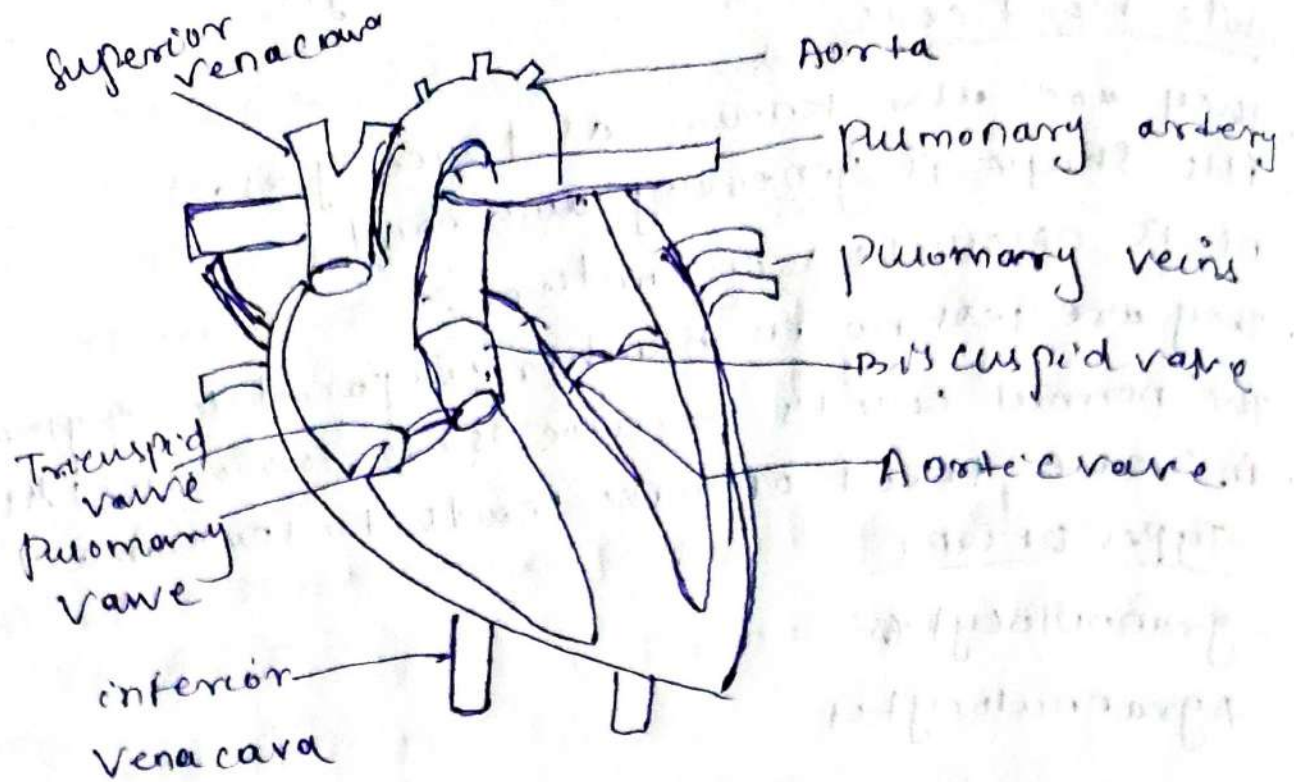 Superior
venacava
Aorta
Pulmonary artery
Pulomary veins
Biscuspid valve
Aortic valve.
Tricuspid
valve
Pulomary
valve
inferior
Vena cava